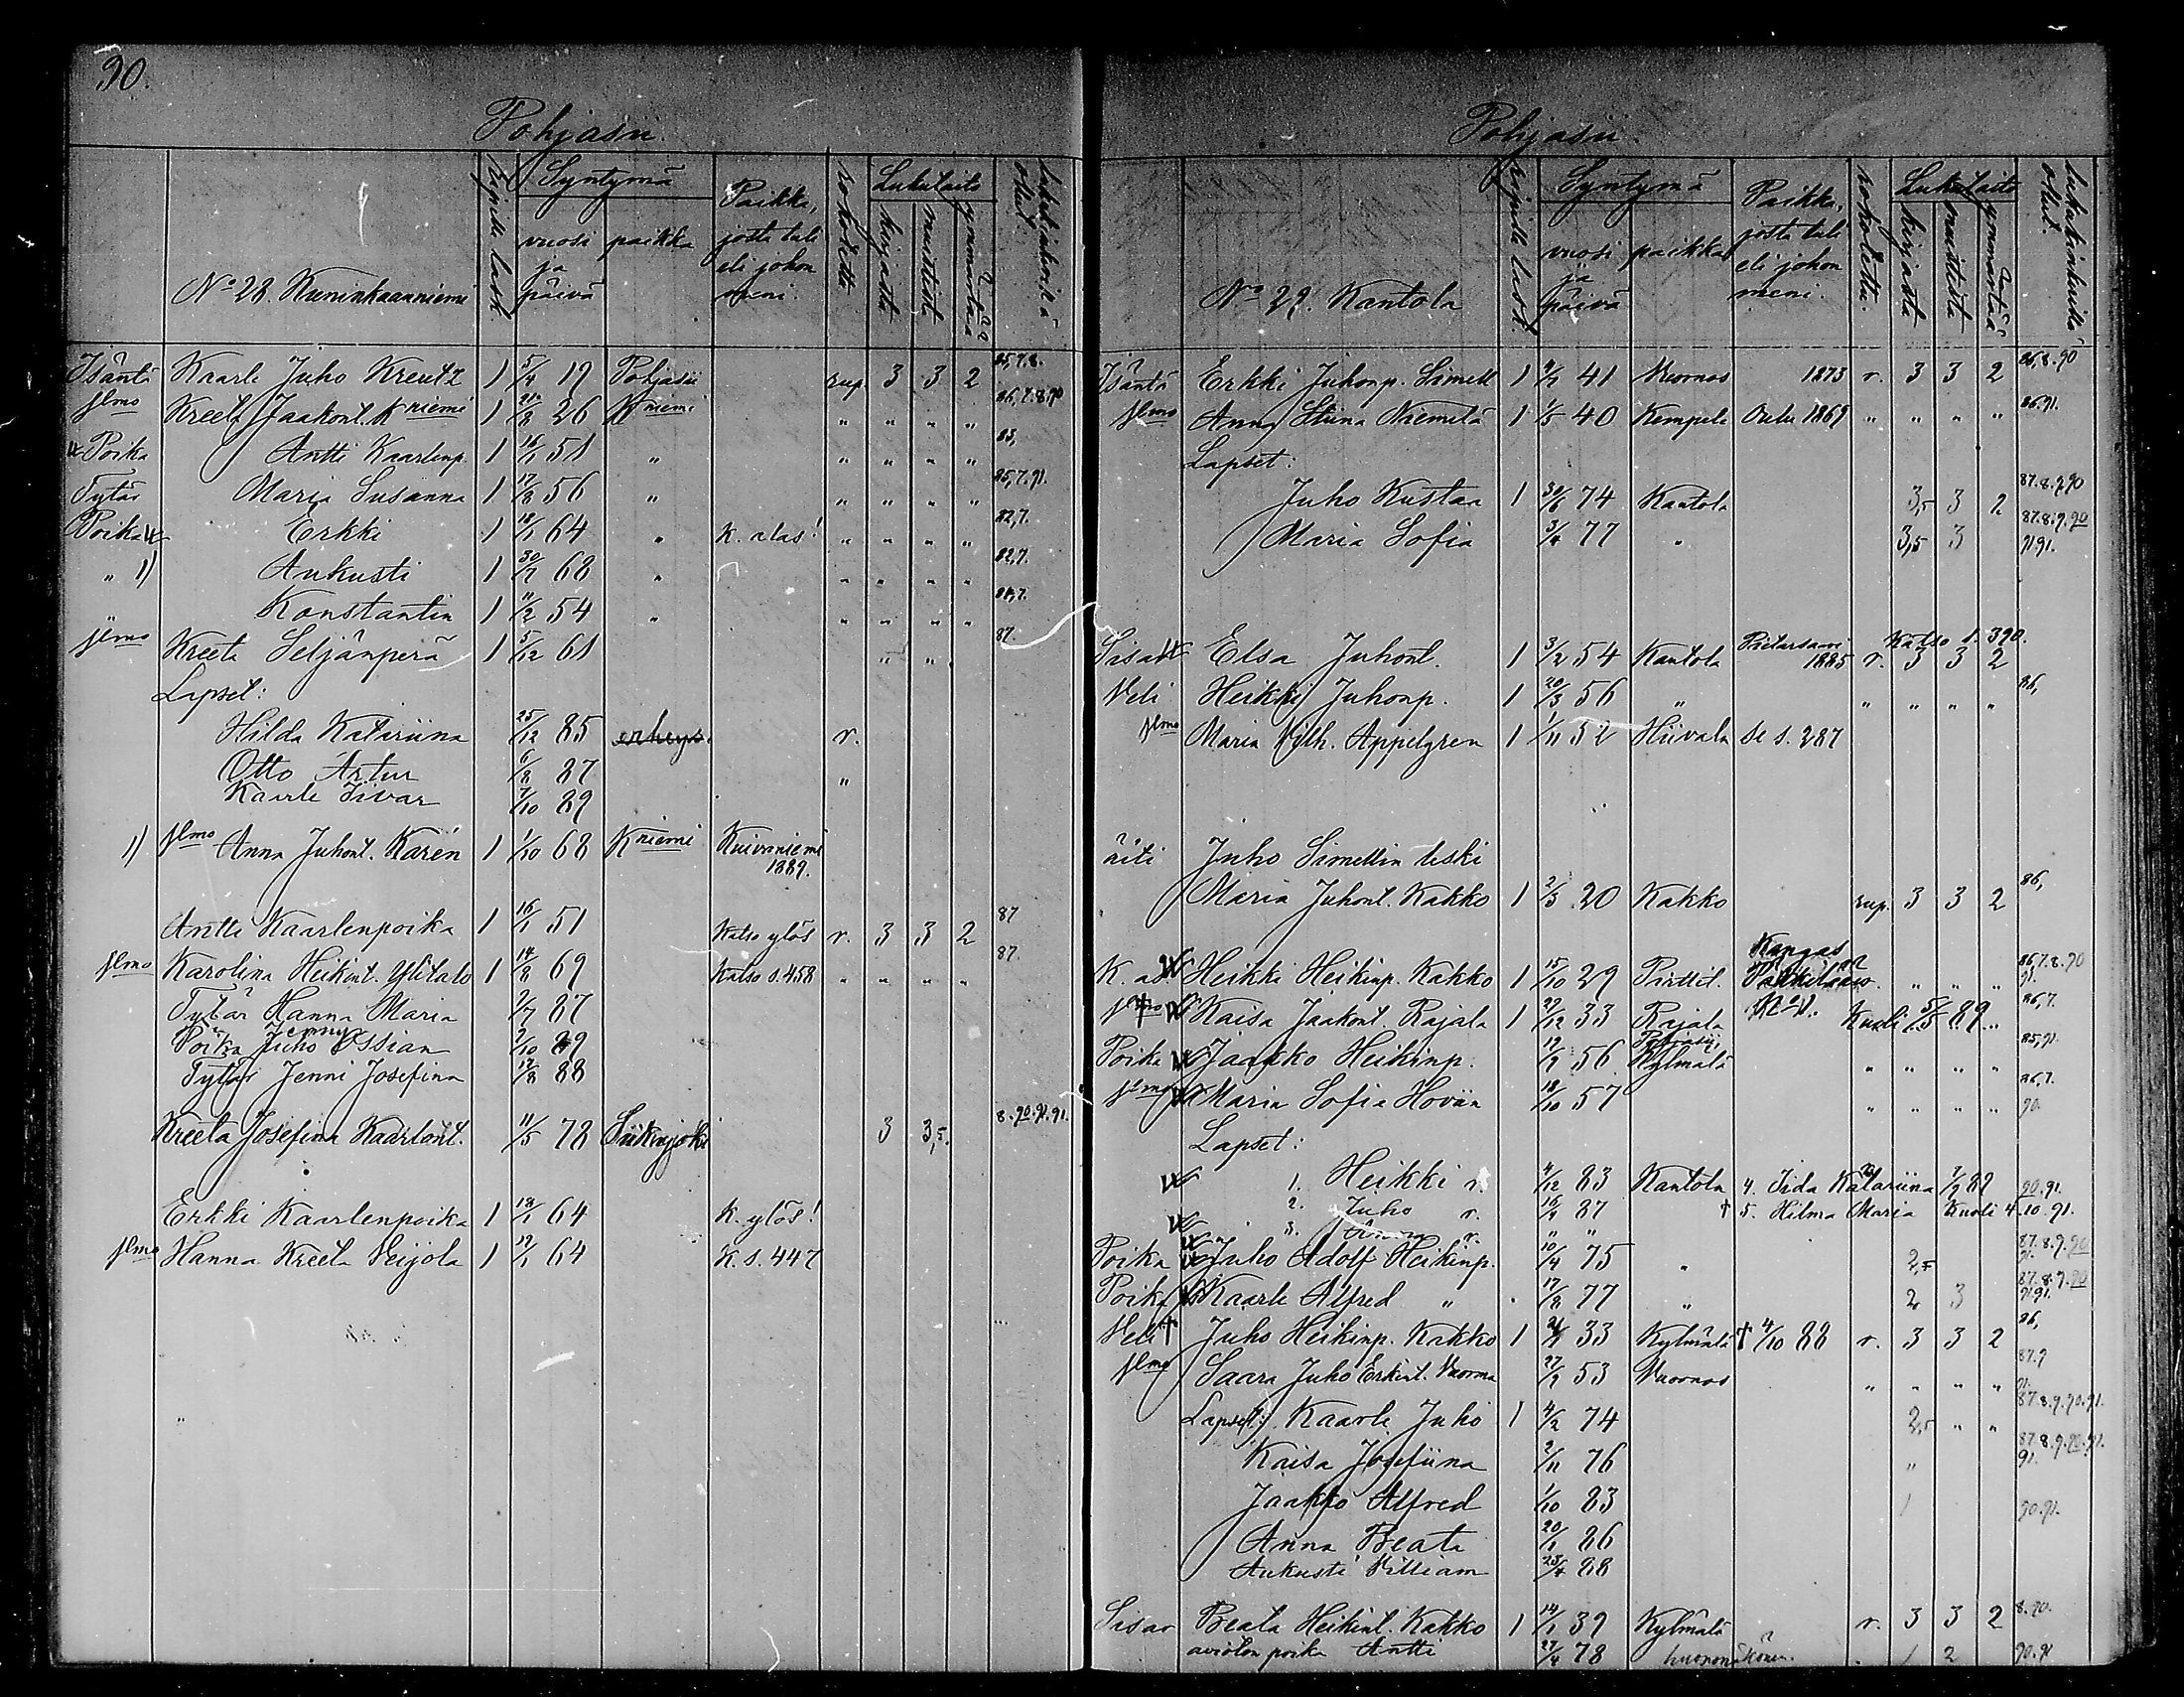 90.
Pohjasii.
Ripillä lask.
Syntymä
vuosi ja päivä
paikka
Paikka, josta tuli eli johon meni.
rokotettu
Lukutaito
kirjasta
muistista
ymmärtää
No 28. Kuninkaanniemi
Isäntä Kaarle Juho Kreutz 1 5/4 19 Pohjasii rup. 3 3 2 85,7.8.
Kreeta Jaakont. Kniemi 1 26 Kniemi " " " " 86,7.8.90
Poika Antti Kaarlenp. 1 16/1 51 " " " " " 83,
Tytär Maria Susanna 1 17/8 56 " " " " " 85,7.91.
Poika Erkki 1 18/1 64 " K. alas! " " " " 82,7.
" 1) Aukusti 1 68 " " " " " 82,7.
" Konstantin 1 11/2 54 " " " " "
Kreeta Seljänperä 1 5/12 61 " " 87.
Lapset:
Hilda Katariina 25/12 85 r.
Otto Artur 6/8 87 "
Kaarle Iivar 7/10 89
1) Anna Juhont. Karén 1 1/10 68 Kniemi Kuivaniemi 1889.
Antti Kaarlenpoika 1 16/1 51 Katso ylös r. 3 3 2 87
Karolina Heikint. Ylitalo 1 14/8 69 Katso s. 458 " " " " 87.
Tytär Hanna Maria 87
Poika Juho Ossian 2/10 89
Tytär Jenni Josefina 12/8 88
Kreeta Josefina Kaarlont. 11/5 78 Siikajoki 3 3,5. 8.90.91.91.
Erkki Kaarlenpoika 1 18/1 64 K. ylös!
Hanna Kreeta Veijola 1 19/1 64 K. s. 447
Pohjasii.
Syntymä
vuosi ja päivä
paikka
Paikka, josta tuli eli johon meni.
rokotettu.
Lukutaito
kirjasta
muistista
ymmärtää
No 29. Kantola
Isäntä Erkki Juhonp. Simell 1 41 Vuornos 1873 r. 3 3 2 86,8.90
Anna Stiina Niemelä 1 1/5 40 Kempele Oulu 1869 " " " " 86.91.
Lapset:
Juho Kustaa 1 74 Kantola 3,5 3 2 87.8.9.90
Maria Sofia 3/4 77 " 3,5 3 87.8.9.90 91.91.
Sisar Elsa Juhont. 1 3/2 54 Kantola Pietarsaari 1885 r. 3 3 2 Katso s. 390.
Veli Heikki Juhonp. 1 20/3 56 " " " " " 86,
Maria Vilh. Appelgren 1 1/11 52 Hiivala se s. 287
äiti Juho Simellin leski
Maria Juhont. Kakko 1 2/3 20 Kakko rup. 3 3 2 86,
Heikki Heikinp. Kakko 1 15/10 29 Pirttil. Kangas " " " 86,7.8.90 91.
Kaisa Jaakont. Rajala 1 27/12 33 Rajala Kuoli 5/5 89 " 86,7.
Poika Jaakko Heikinp. 56 Kylmälä " " " " 85,91.
Maria Sofia Hovän 18/10 57 " " " " 86,7. 90.
Lapset:
1. Heikki r. 4/12 83 Kantola 4. Iida Katariina 89 90.91.
2. Juho r. 87 † 5. Hilma Maria Kuoli 4.10.91.
3. r. " "
Poika Juho Adolf Heikinp. 10/4 75 " 2,5 87.8.9.90 91.
Poika Kaarle Alfred " 17/8 77 " 2 3 87.8.9.90 91.91.
Veli † Juho Heikinp. Kakko 1 33 Kylmälä † 4/10 88 r. 3 3 2 86,
Saara Juho Erkint. Vuorma 53 Vuornos " " " " 87.9 91.
Lapset: Kaarle Juho 1 4/2 74 2,5 " " 87.8.9.90.91.
Kaisa Josefiina 2/11 76 " 87.8.9.90.91. 91.
Jaakko Alfred 1/10 83 1 90.91.
Anna Beata 20/1 86
Aukusti Villiam 25/4 88
Sisar Beata Heikint. Kakko 1 14/1 39 Kylmälä r. 3 3 2 8.90.
aviöton poika Antti 27/4 78 huononäköinen. 1 2 90.91